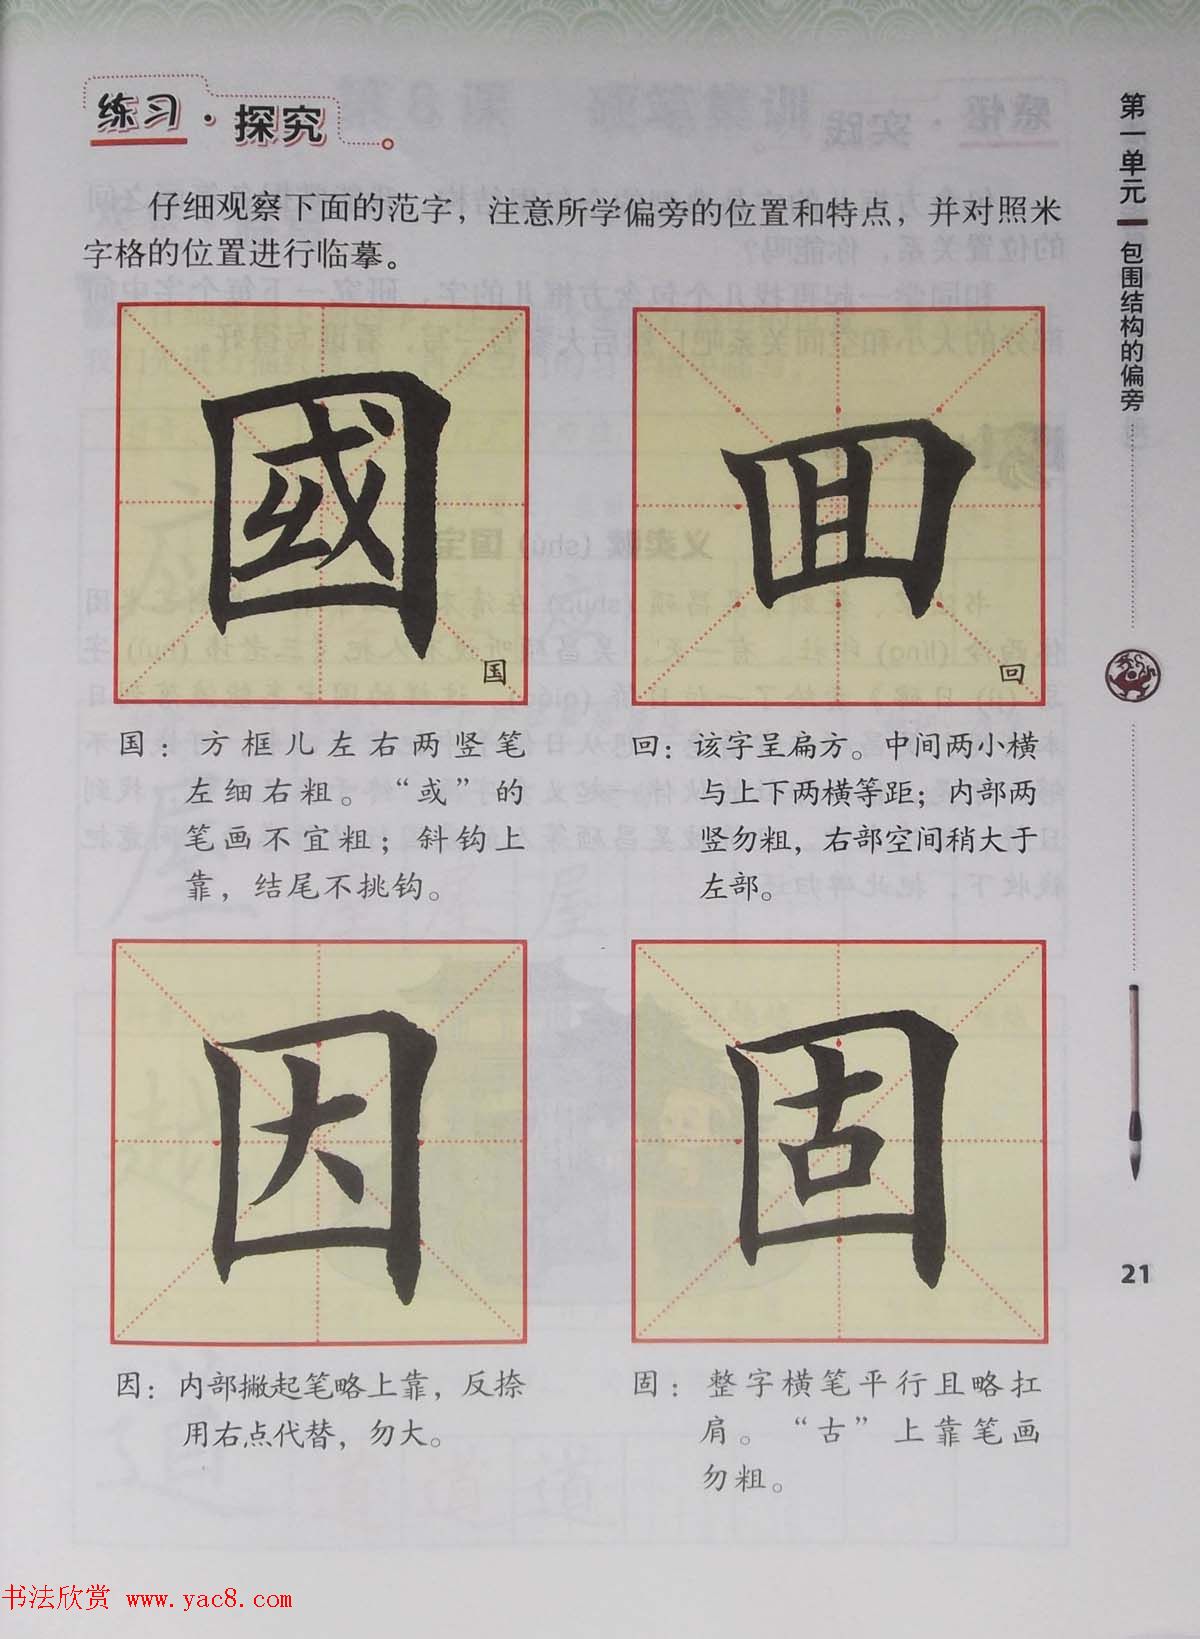 练习·探究
仔细观察下面的范字，注意所学偏旁的位置和特点，并对照米
字格的位置进行临摹。
國
国
回
回
国：方框儿左右两竖笔
左细右粗。“或”的
笔画不宜粗；斜钩上
靠，结尾不挑钩。
回：该字呈扁方。中间两小横
与上下两横等距；内部两
竖勿粗，右部空间稍大于
左部。
因
固
因：内部撇起笔略上靠，反捺
用右点代替，勿大。
固：整字横笔平行且略扛
肩。“古”上靠笔画
勿粗。
第一单元
包围结构的偏旁
21
书法欣赏 www.yac8.com